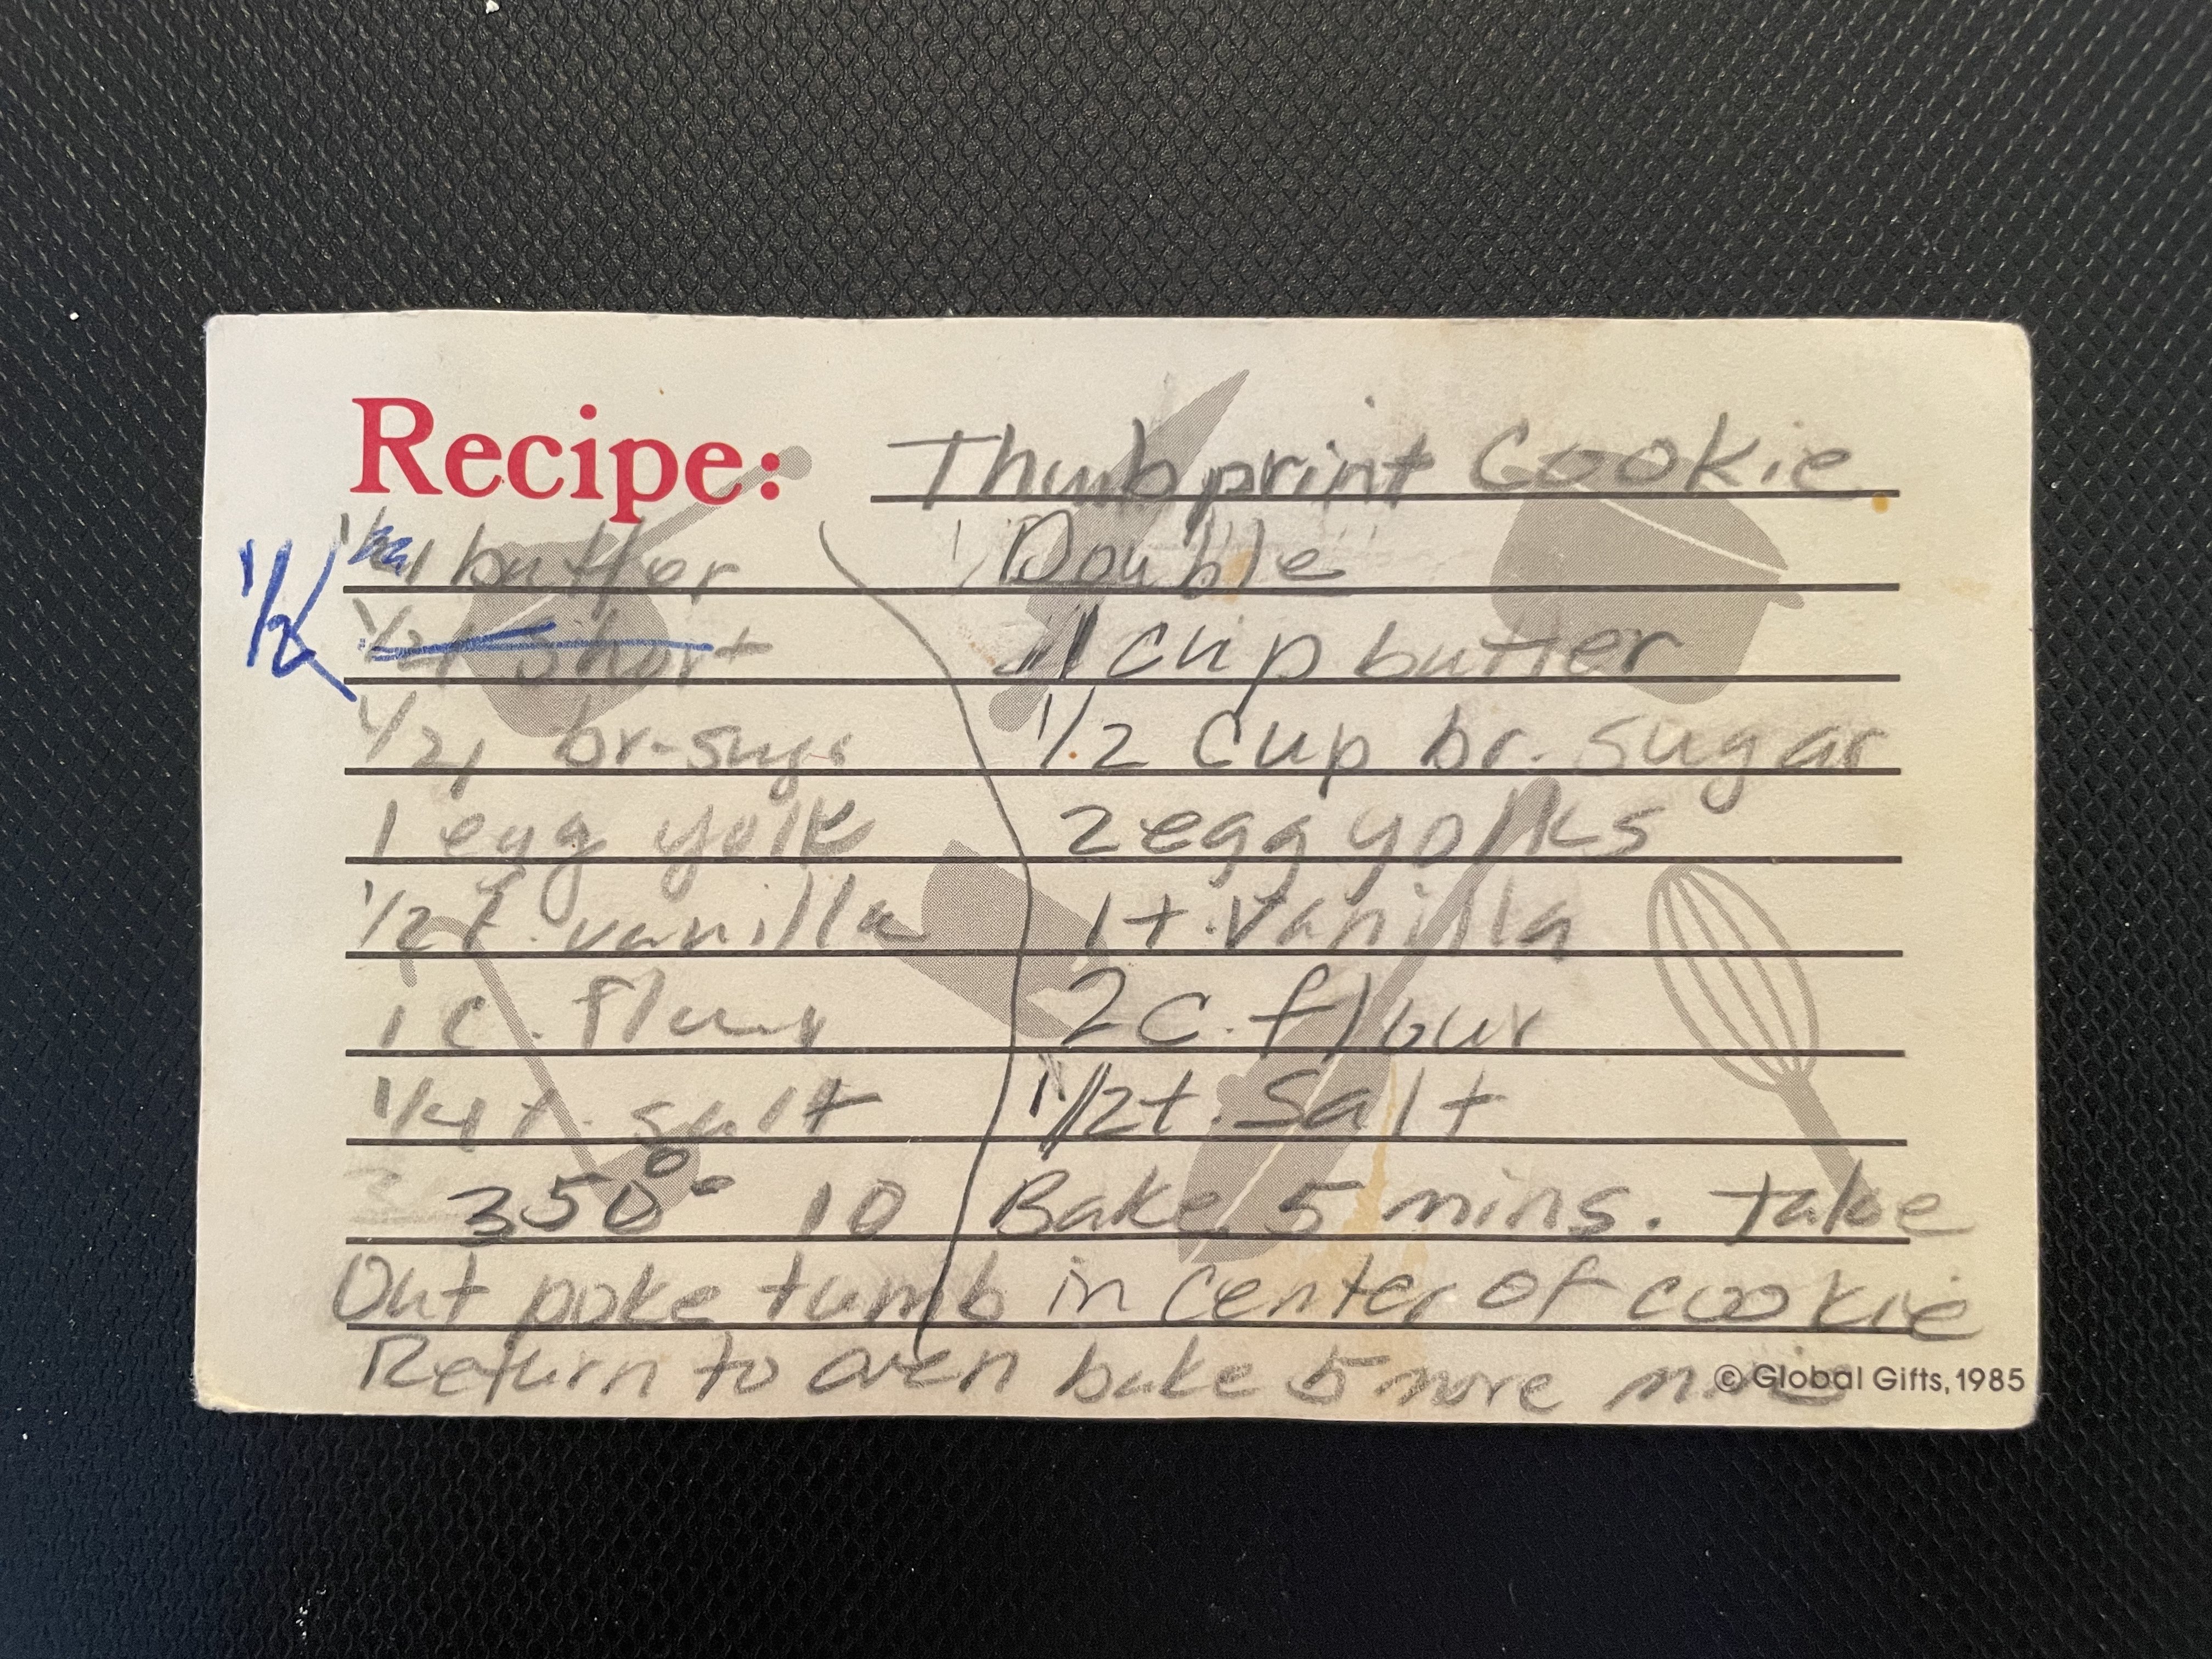 Recipe: Thumbprint Cookie
butter
Double
1/2
short
1 cup butter
br-sugr
1/2 cup br. sugar
1 egg yolk
2 egg yolks
1/2 t. vanilla
1 t. vanilla
1 c. flour
2 c. flour
1/4 t. salt
1/2 t. salt
350° - 10
Bake 5 mins. take
Out poke tumb in center of cookie
Return to oven bake 5 more
© Global Gifts, 1985